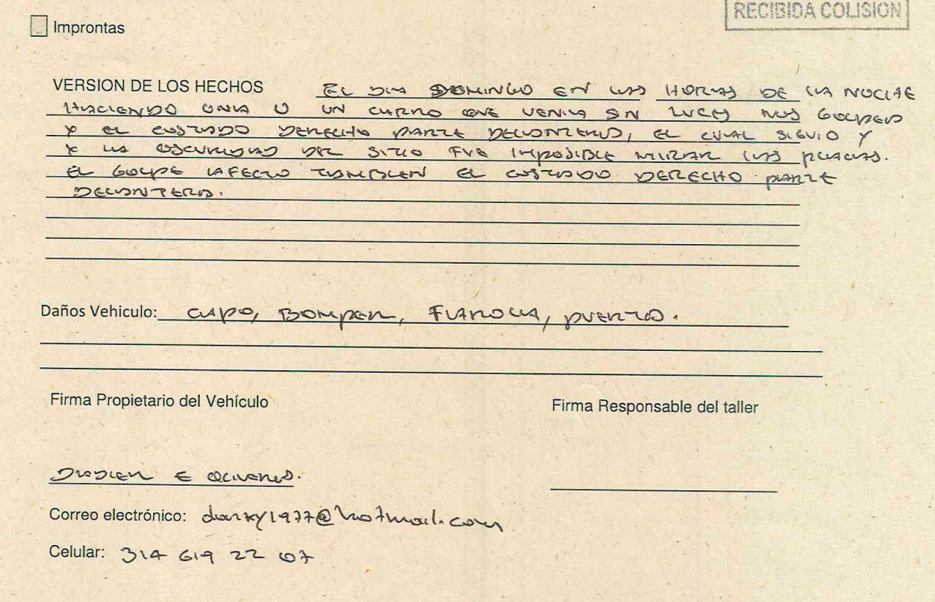 RECIBIDA COLISION
Improntas
VERSION DE LOS HECHOS EL DIA DOMINGO EN LAS HORAS DE LA NOCHE
HACIENDO UNA U UN CARRO QUE VENIA SIN LUCES NOS GOLPEO
Y EL COSTADO DERECHO PARTE DELANTERO, EL CUAL SIGUIO Y
X LA OSCURIDAD DEL SITIO FUE IMPOSIBLE MIRAR LAS PLACAS.
EL GOLPE AFECTO TAMBIEN EL COSTADO DERECHO PARTE
DELANTERA.
Daños Vehiculo: CAPO, BOMPER, FAROLA, PUERTA.
Firma Propietario del Vehículo
Firma Responsable del taller
E
Correo electrónico: @hotmail.com
Celular: 314 619 22 07